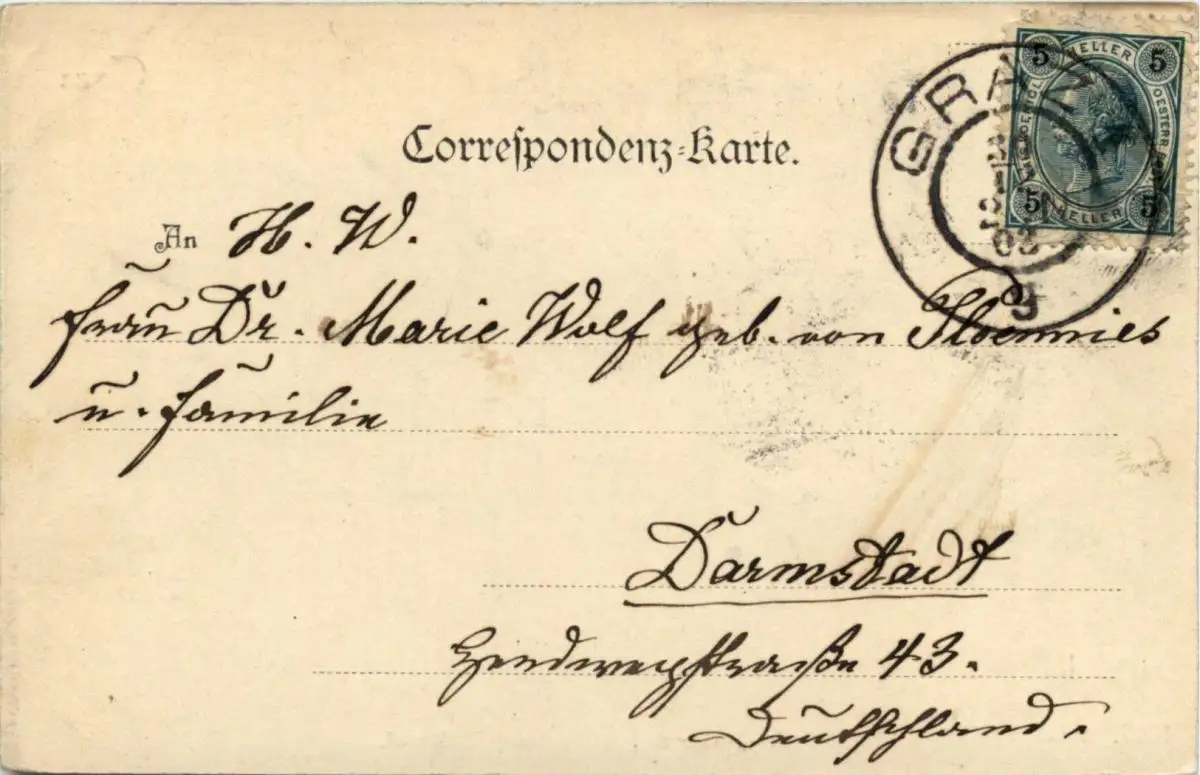 Correspondenz-Karte.
5 HELLER 5
5 HELLER 5
An H. W.
Frau Dr. Marie Wolf geb. von Ploennies
u. Familie
Darmstadt
43.
Deutschland.